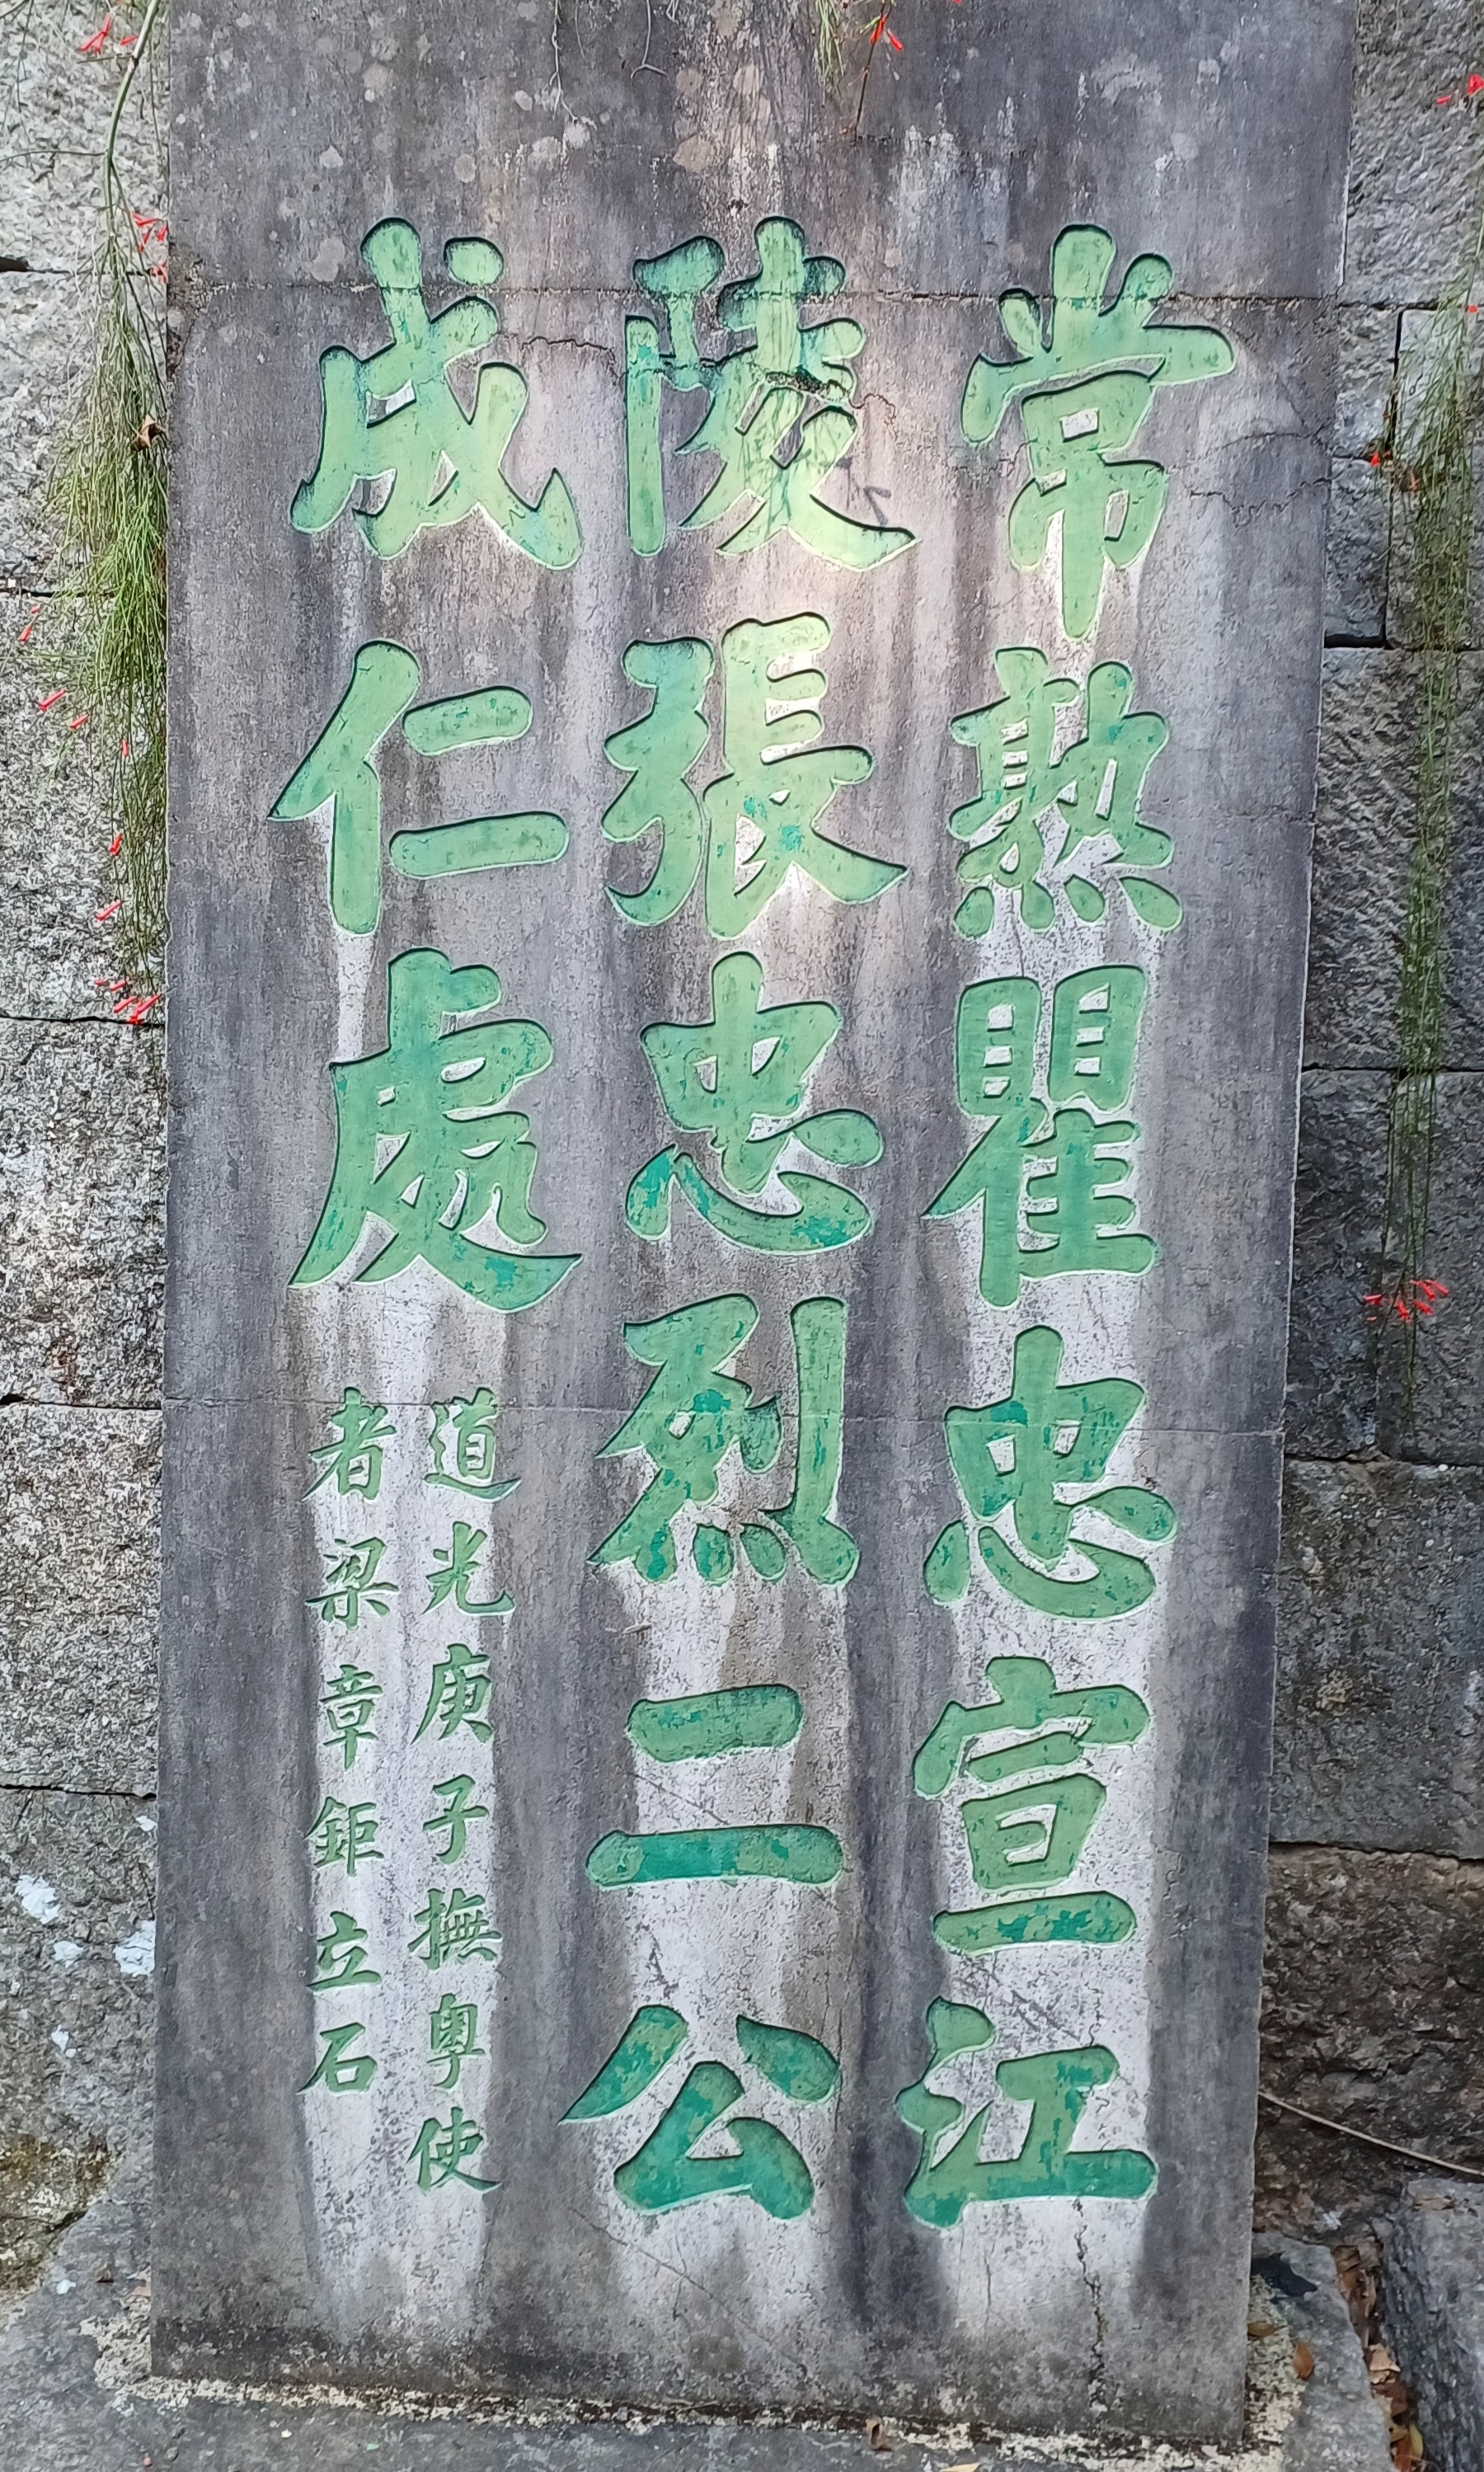 常熟瞿忠宣江
陵張忠烈二公
成仁處
道光庚子撫粵使
者梁章鉅立石